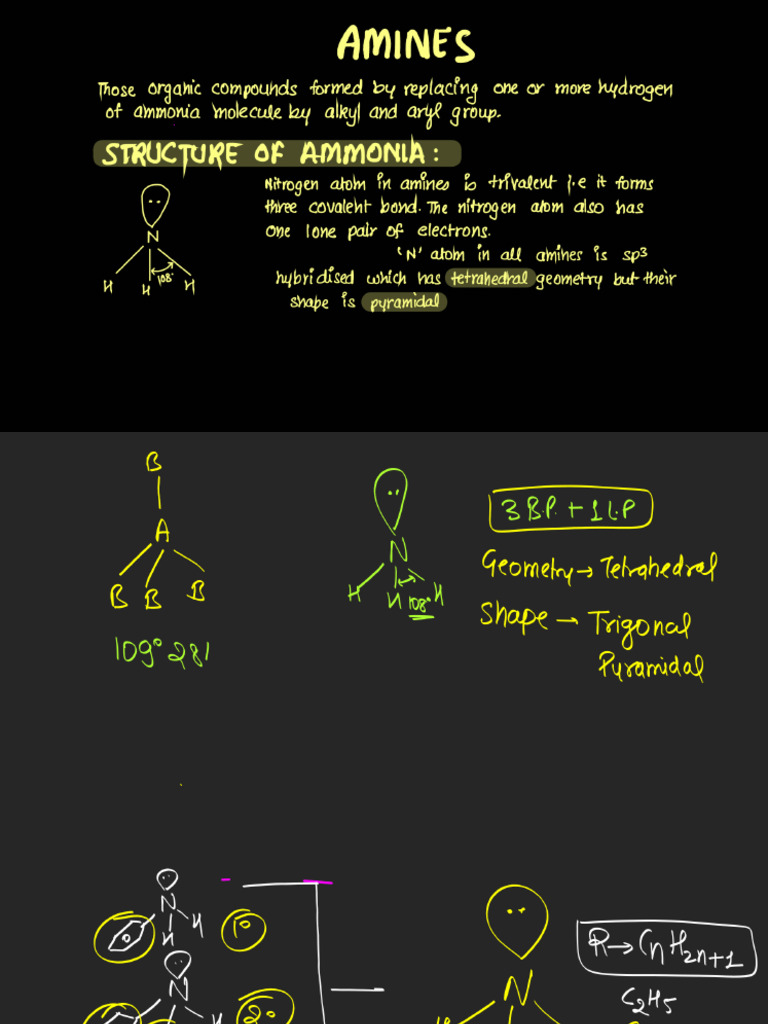 AMINES
Those organic compounds formed by replacing one or more hydrogen
of ammonia molecule by alkyl and aryl group.
STRUCTURE OF AMMONIA:
Nitrogen atom in amines is trivalent i.e it forms
three covalent bond. The nitrogen atom also has
one lone pair of electrons.
'N' atom in all amines is sp3
hybridised which has tetrahedral geometry but their
shape is pyramidal
N
108°
H H H
B
A
B B B
109° 28'
N
H H 108° H
3 B.P. + 1 L.P
Geometry → Tetrahedral
Shape → Trigonal
Pyramidal
N
H
H
1°
N
2°
N
R → CnH2n+1
C2H5